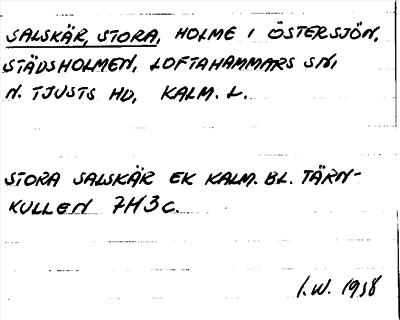 SALSKÄR, STORA, HOLME I ÖSTERSJÖN,
STÄDSHOLMEN, LOFTAHAMMARS SN,
N. TJUSTS HD, KALM. L.
STORA SALSKÄR EK KALM. BL. TÄRN-
KULLEN 7H3c.
I.W. 1938